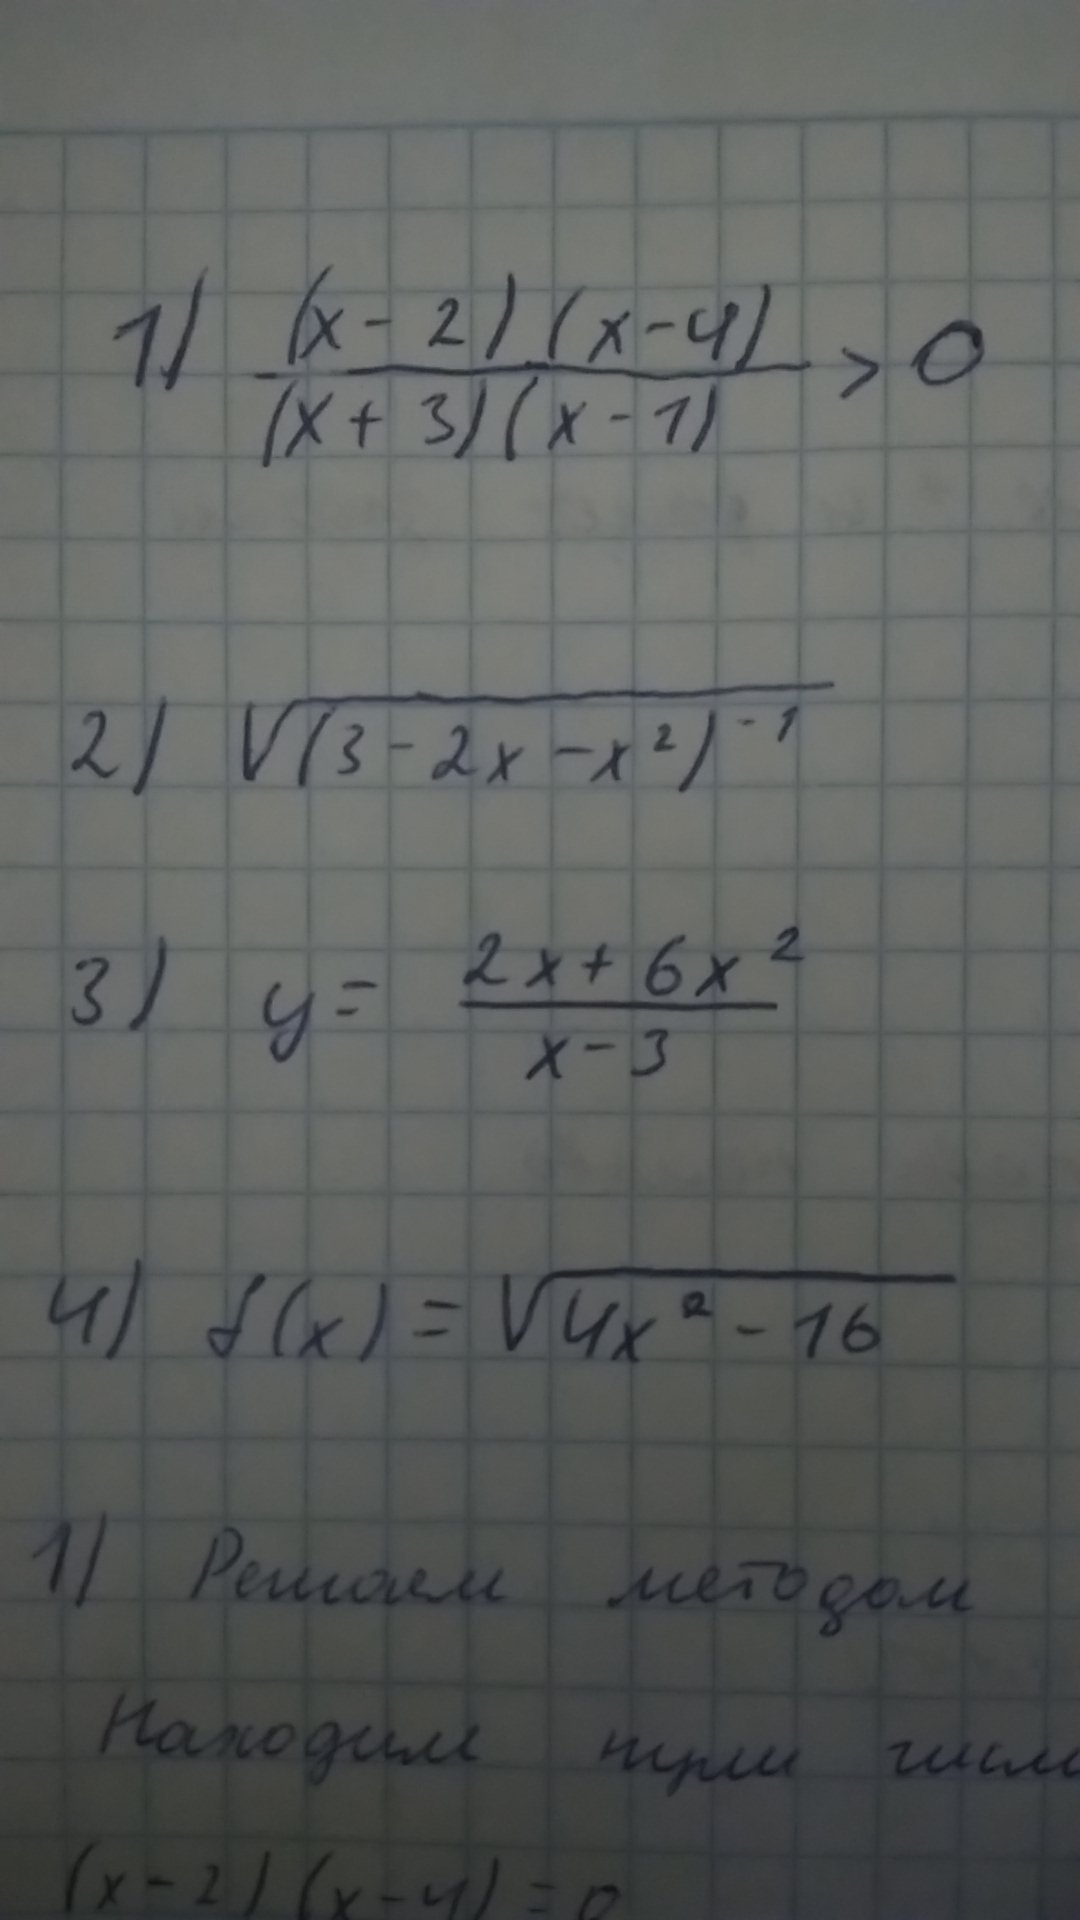 1) (x - 2) (x - 4)
(x + 3) (x - 1) > 0
2) √(3 - 2x - x²)⁻¹
3) y = 2x + 6x²
x - 3
4) f(x) = √4x² - 16
1) Решаем методом
Находим нули
(x - 2) (x - 4) = 0